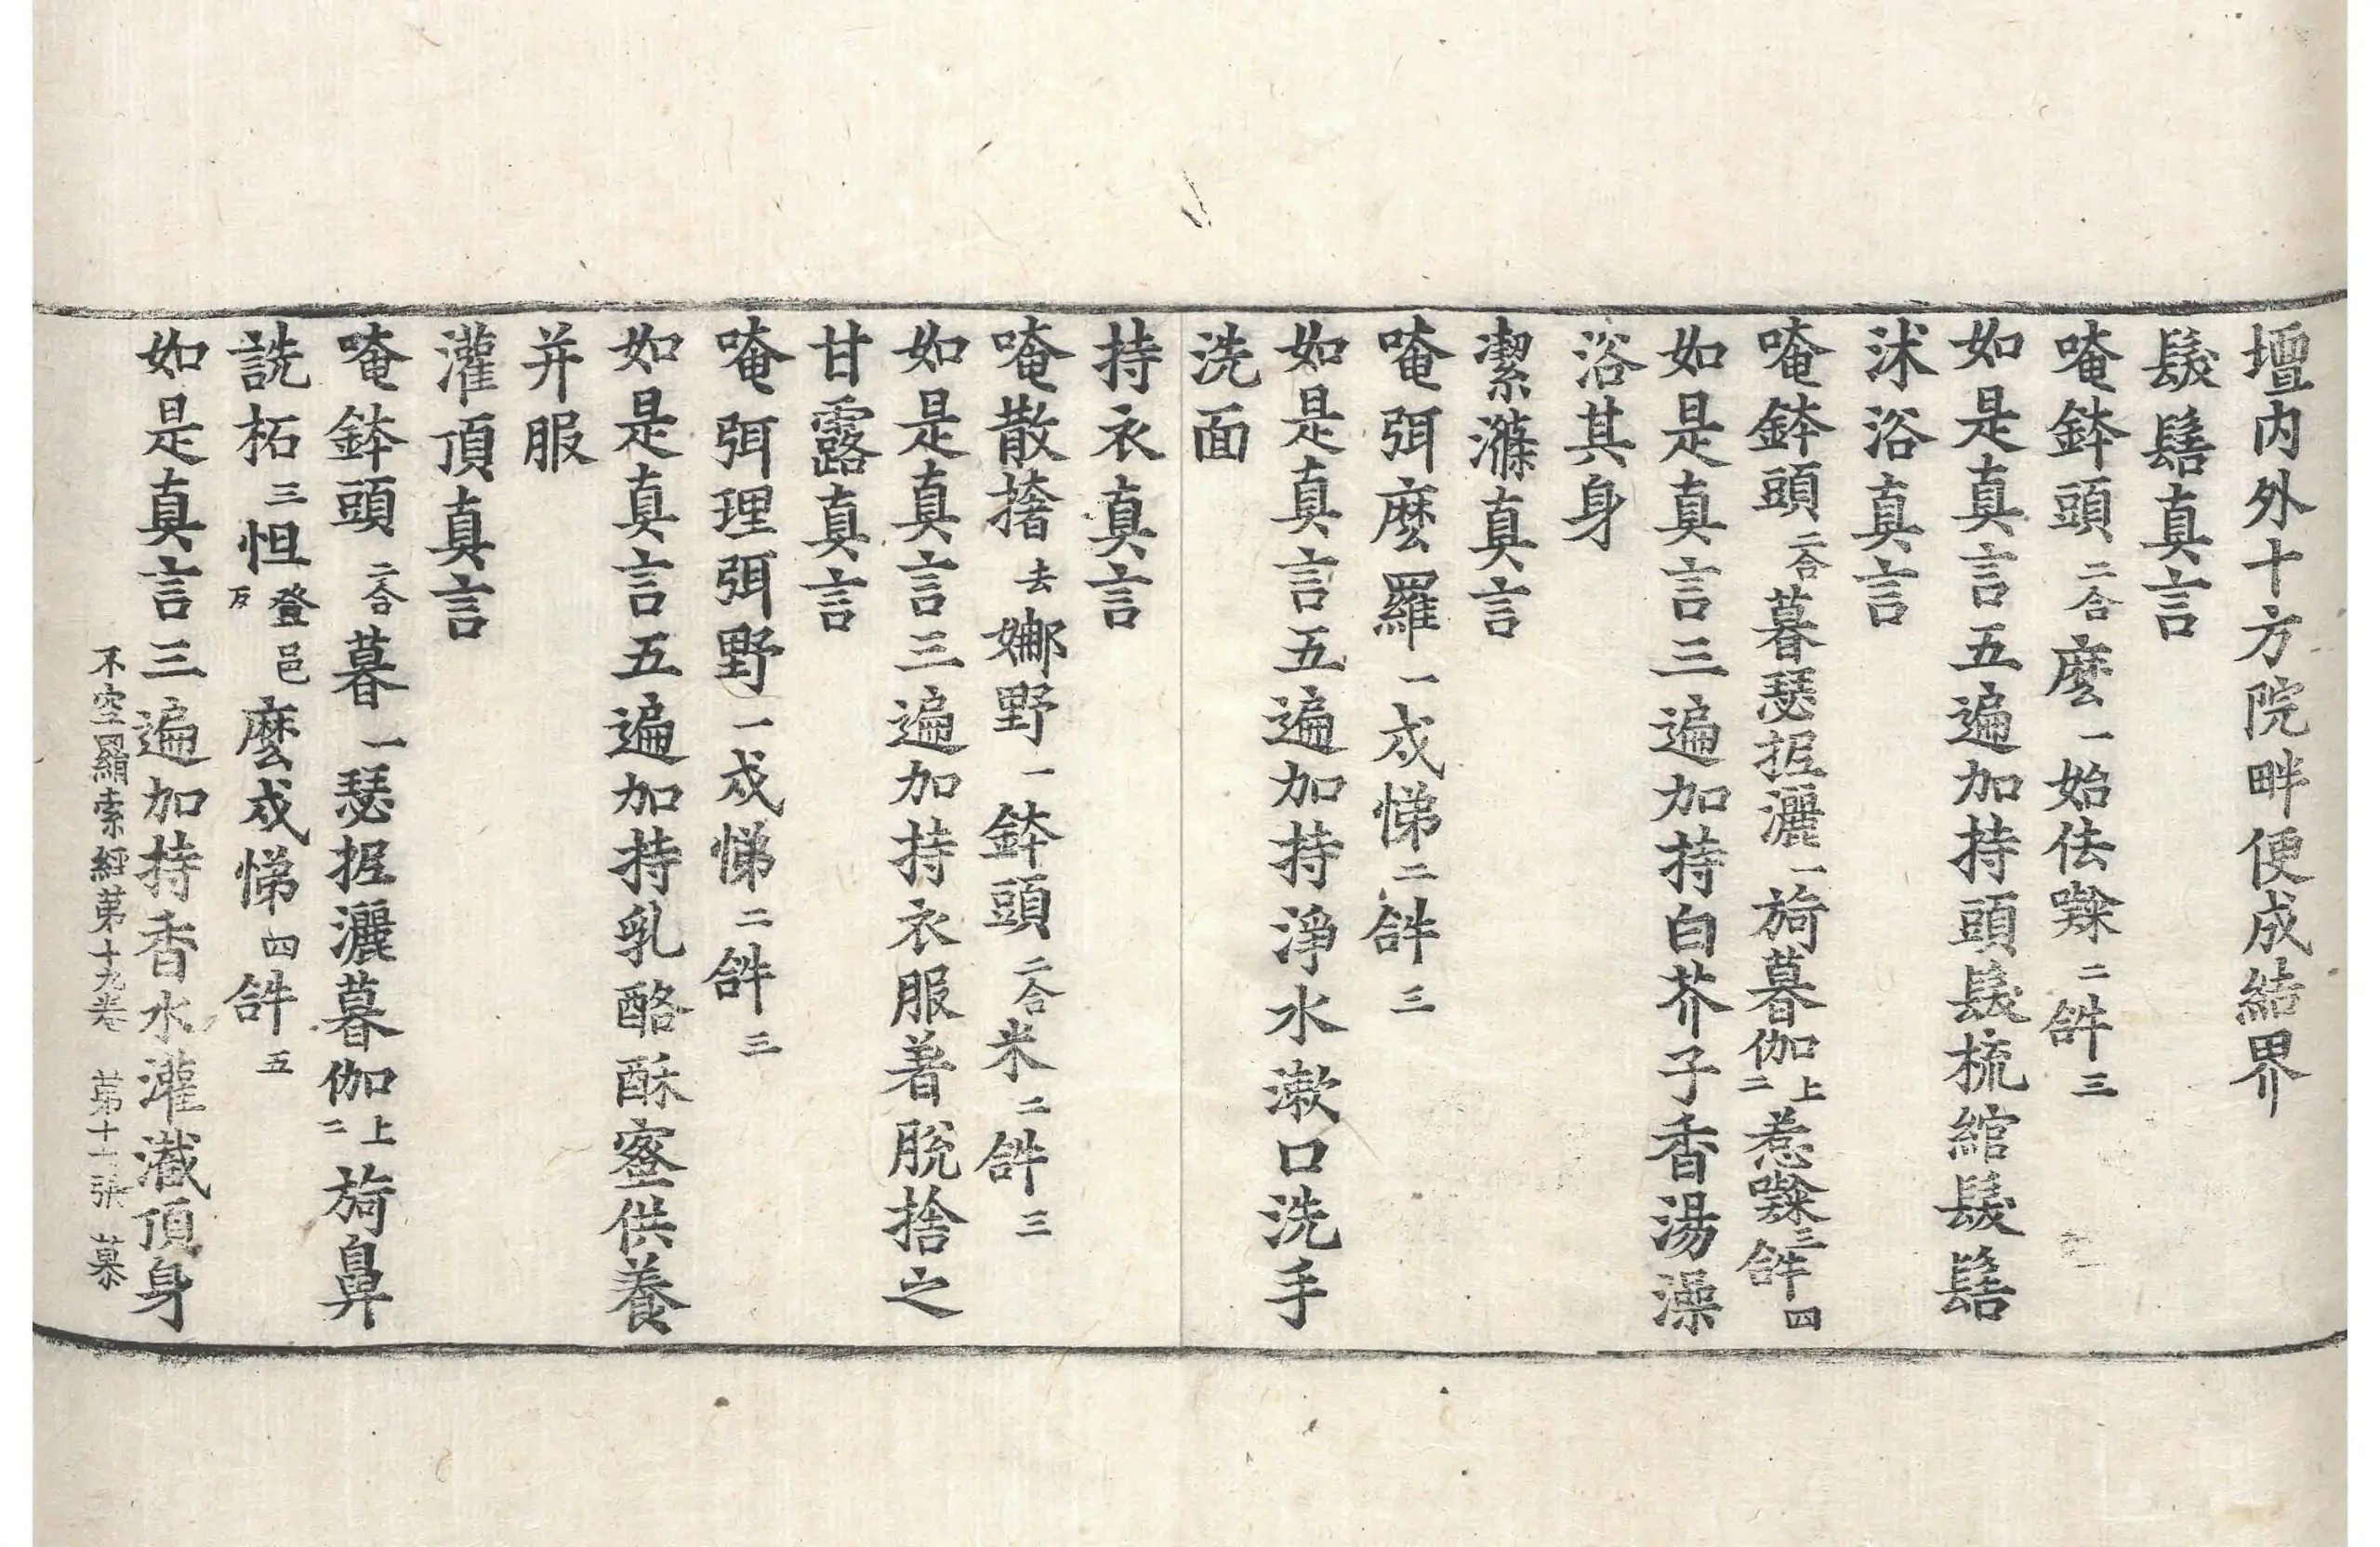 壇内外十方院畔便成結界
鬀髻真言
唵鉢頭二合麼一始佉㘑二𤙖三
如是真言五遍加持頭髮梳綰髮髻
沐浴真言
唵鉢頭二合暮瑟抳灑一旖暮伽上二惹㘑三𤙖四
如是真言三遍加持白芥子香湯澡
浴其身
潔滌真言
唵弭麼羅一戍悌二𤙖三
如是真言五遍加持淨水漱口洗手
洗面
持衣真言
唵散撦去娜野一鉢頭二合米二𤙖三
如是真言三遍加持衣服著脫捨之
甘露真言
唵弭理弭野一戍悌二𤙖三
如是真言五遍加持乳酪酥蜜供養
并服
灌頂真言
唵鉢頭二合暮一瑟抳灑暮伽上二旖鼻
詵柘三怛登邑反麼戍悌四𤙖五
如是真言三遍加持香水灌濺頂身
不空羂索經第十九卷 第十一張 慕